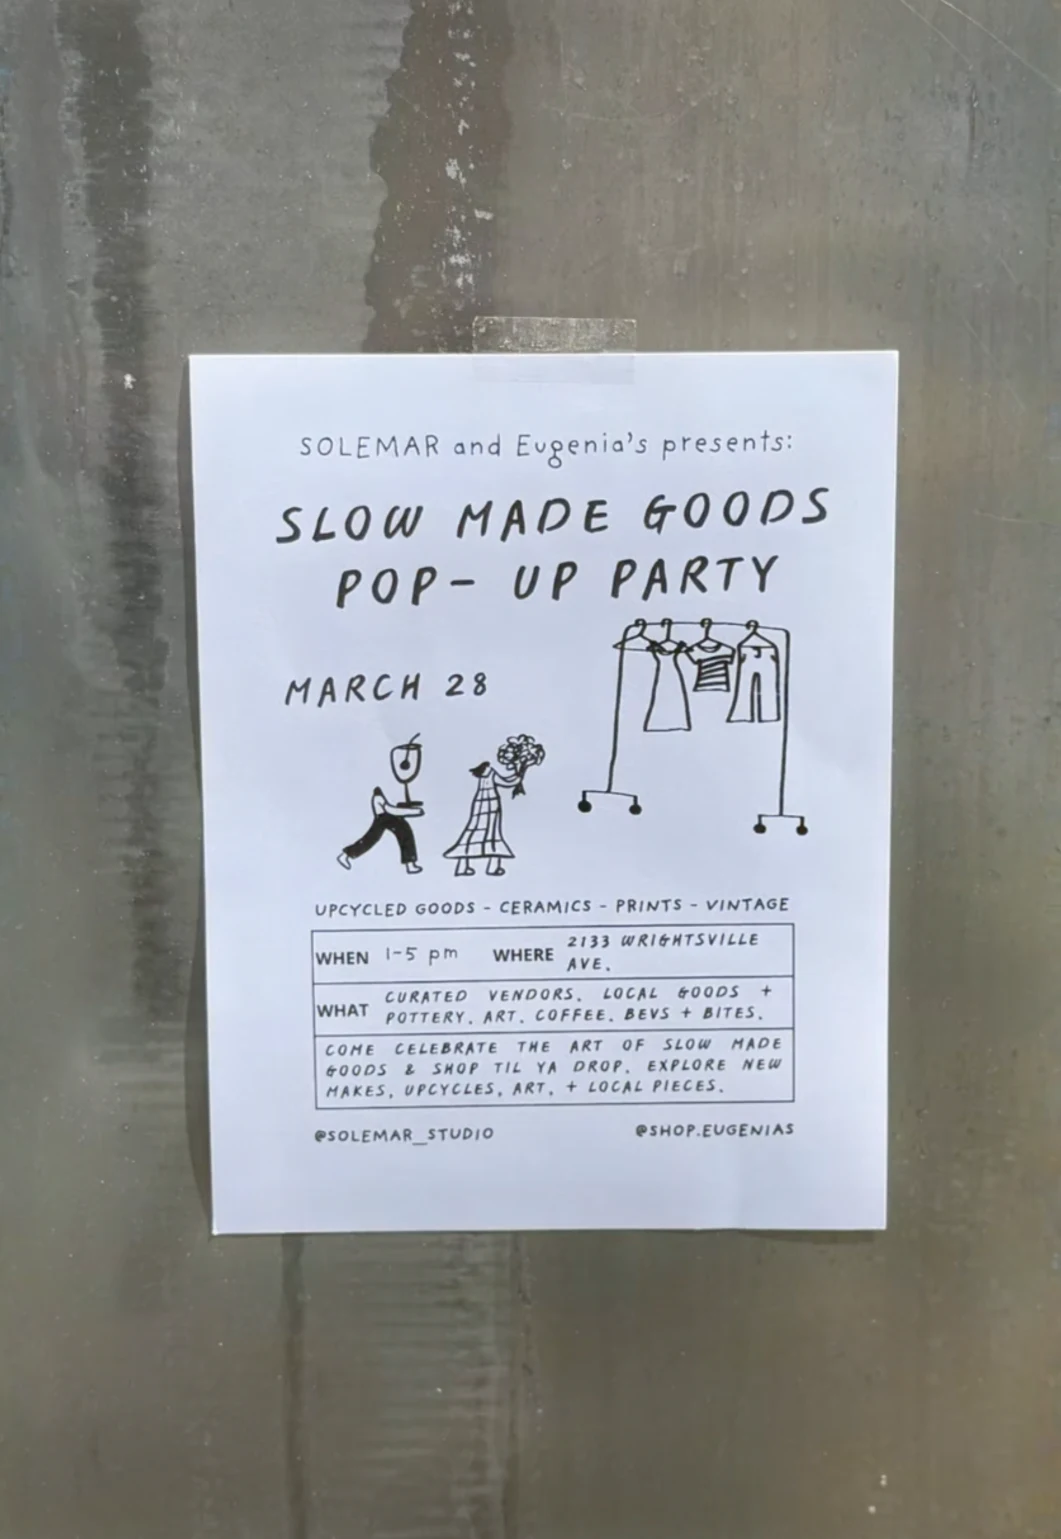 SOLEMAR and Eugenia's presents:
SLOW MADE GOODS
POP- UP PARTY
MARCH 28
UPCYCLED GOODS - CERAMICS - PRINTS - VINTAGE
WHEN 1-5 pm WHERE 2133 WRIGHTSVILLE
AVE.
WHAT CURATED VENDORS, LOCAL GOODS +
POTTERY, ART, COFFEE, BEVS + BITES.
COME CELEBRATE THE ART OF SLOW MADE
GOODS & SHOP TIL YA DROP. EXPLORE NEW
MAKES, UPCYCLES, ART, + LOCAL PIECES.
@SOLEMAR_STUDIO @SHOP.EUGENIAS